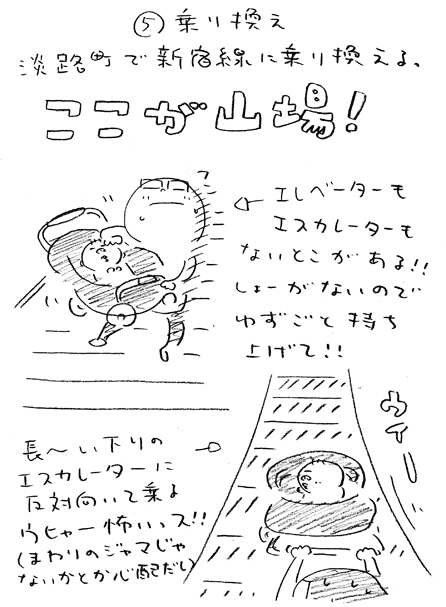 ⑤乗り換え
淡路町で新宿線に乗り換える。
ココが山場!
エレベーターも
エスカレーターも
ないとこがある!!
しょーがないので
ゆずごと持ち
上げて!!
ウィー
長〜い下りの
エスカレーターに
反対向いて乗る
ウヒャー怖いッス!!
(まわりのジャマじゃ
ないかとか心配だし